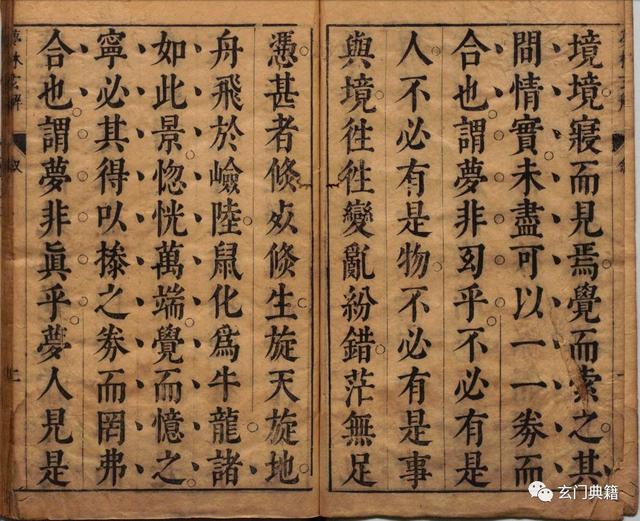 境境寢而見焉覺而索之其
間情實未盡可以一一券而
合也謂夢非幻乎不必有是
人不必有是物不必有是事
與境徃徃變亂紛錯茫無足
憑甚者倏㱙倏生旋天旋地
舟飛於嶮陸鼠化爲牛龍諸
如此景惚恍萬端覺而憶之
寧必其得以搽之券而罔弗
合也謂夢非眞乎夢人見是
夢林玄解
叙
玄门典籍